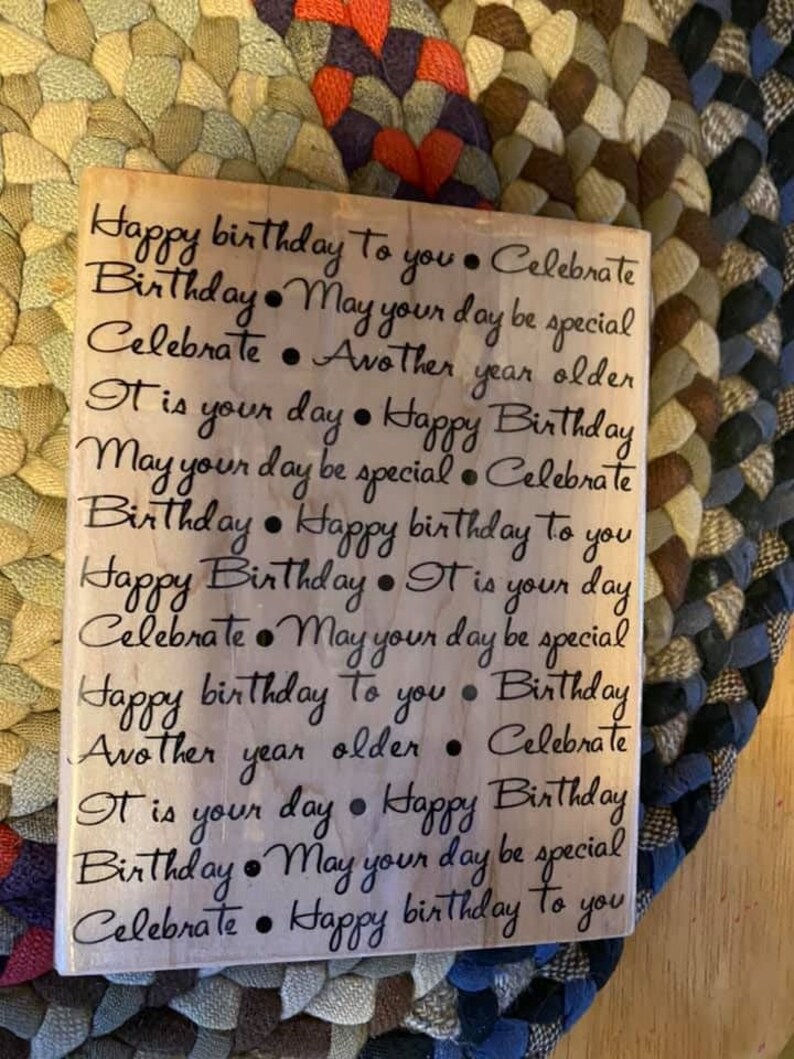 Happy birthday to you • Celebrate
Birthday • May your day be special
Celebrate • Another year older
It is your day • Happy Birthday
May your day be special • Celebrate
Birthday • Happy birthday to you
Happy Birthday • It is your day
Celebrate • May your day be special
Happy birthday to you • Birthday
Another year older • Celebrate
It is your day • Happy Birthday
Birthday • May your day be special
Celebrate • Happy birthday to you